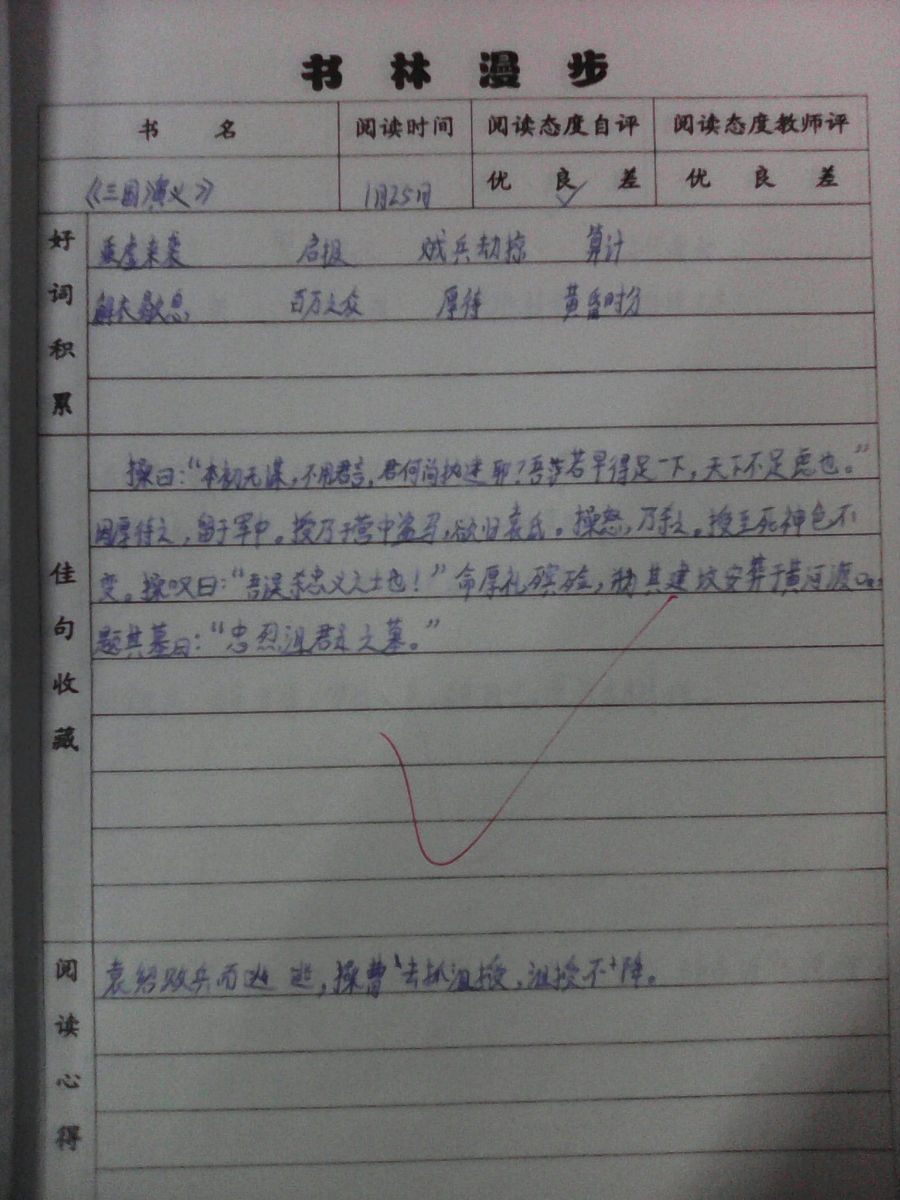 书林漫步
书名 阅读时间 阅读态度自评 阅读态度教师评
《三国演义》 1月25日 优 良 差 优 良 差
好词积累
乘虚来袭 启报 贼兵劫掠 算计
解衣歇息 百万之众 厚待 黄昏时分
佳句收藏
操曰：“本初无谋，不用君言，君何尚执迷耶？吾若早得足下，天下不足虑也。”
因厚待之，留于军中。授乃于营中盗马，欲归袁氏。操怒，乃杀之。授至死神色不
变。操叹曰：“吾误杀忠义之士也！”命厚礼殡殓，为其建坟安葬于黄河渡口。
题其墓曰：“忠烈沮君之墓。”
阅读心得
袁绍败兵而逃，操曹去抓沮授，沮授不降。